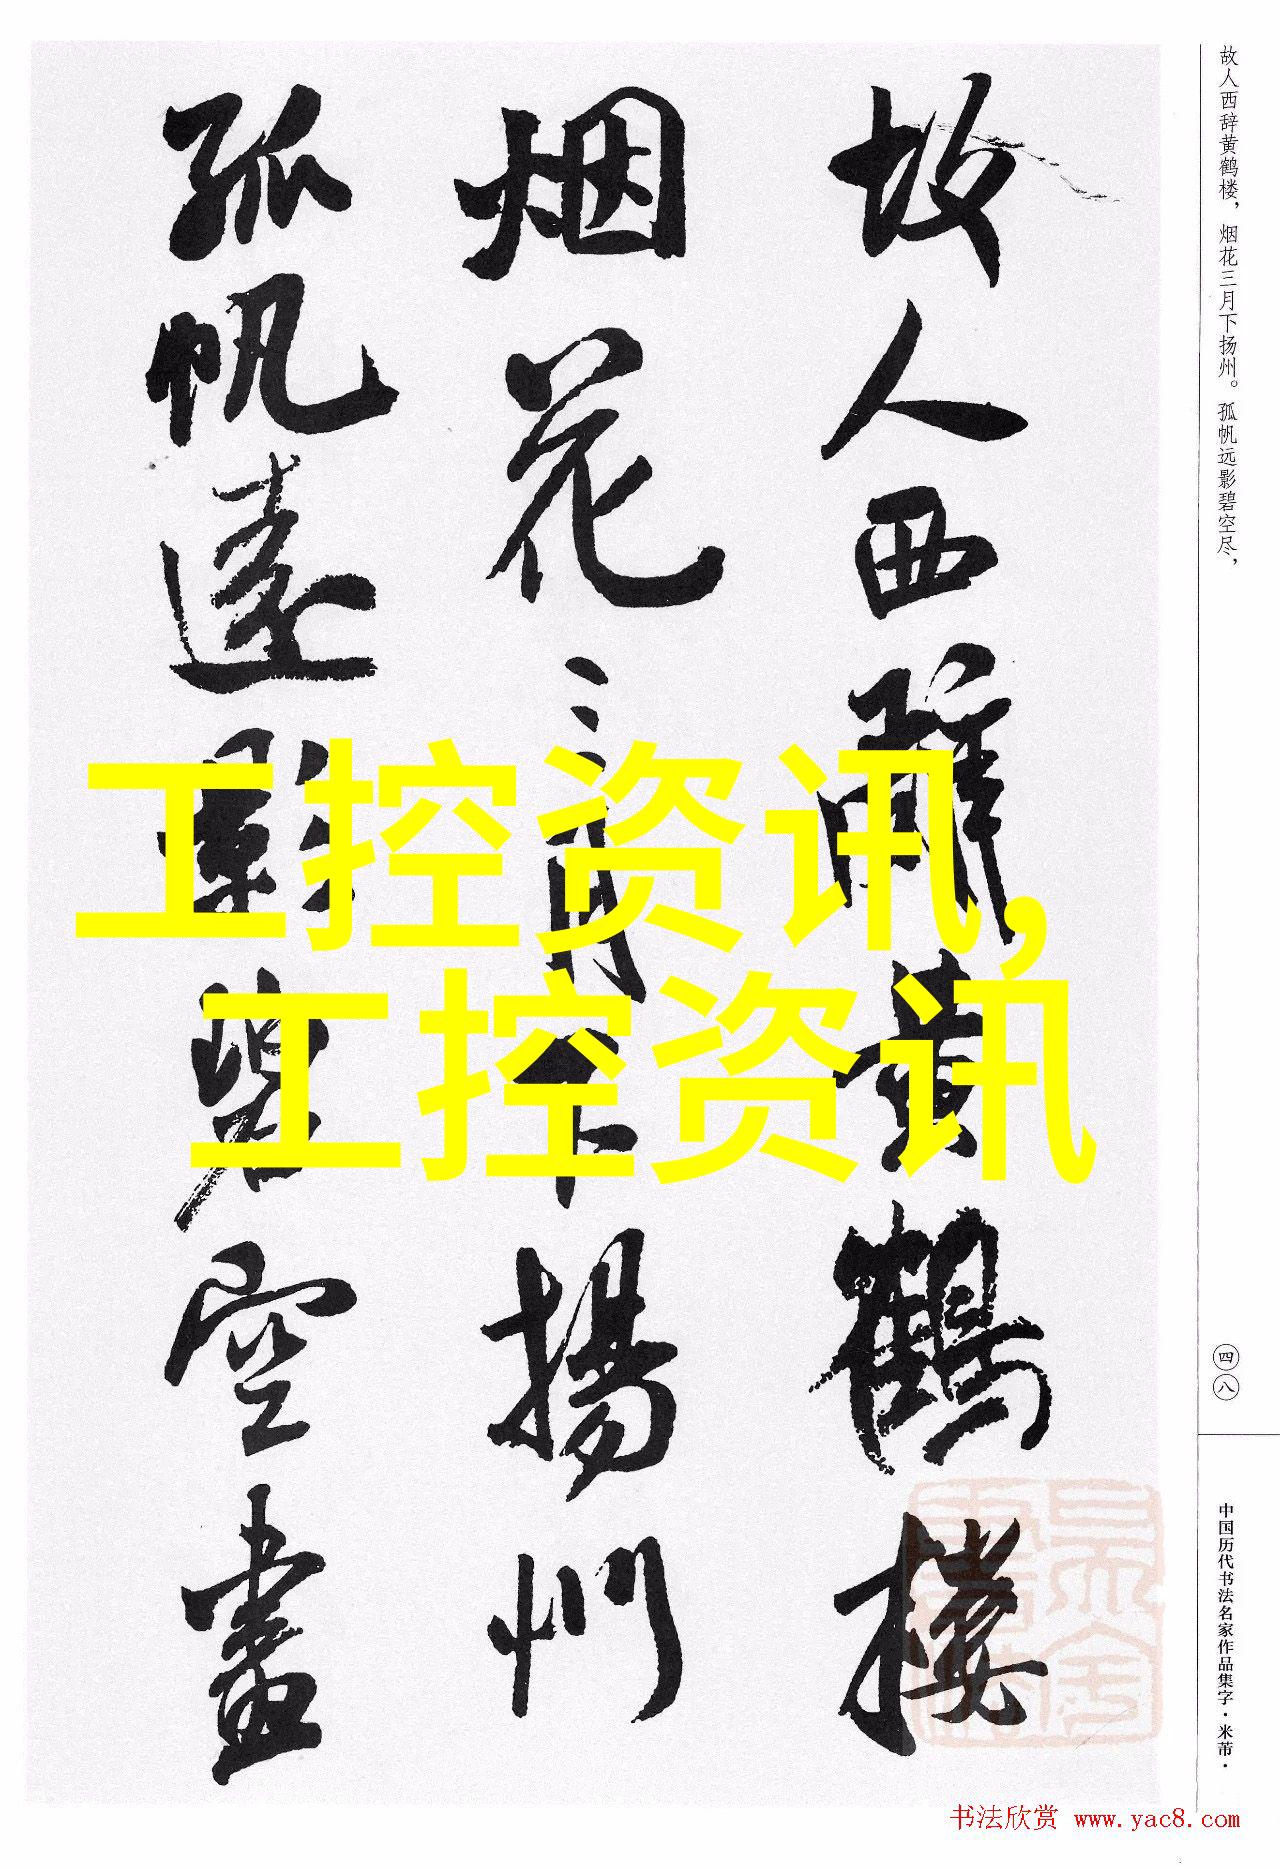 故人西辞黄鹤楼，烟花三月下扬州。孤帆远影碧空尽，
故人西辭黄鶴樓
烟花三月下揚州
孤帆遠影碧空盡
工控资讯,
工控资讯
四八
中国历代书法名家作品集字·米芾·
书法欣赏 www.yac8.com